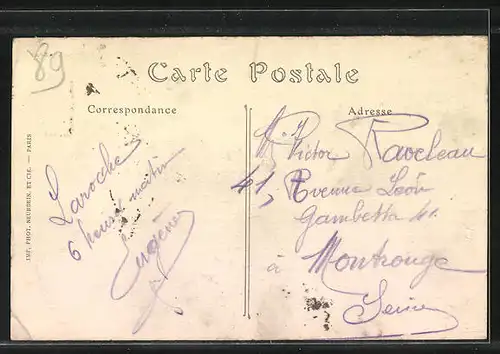 89
Carte Postale
Correspondance
Adresse
IMP. PHOT. NEURDEIN ET CIE. — PARIS
Laroche
6 heures matin
Eugène
M. Victor Raveleau
41, Avenue Léon
Gambetta 41
à Montrouge
Seine